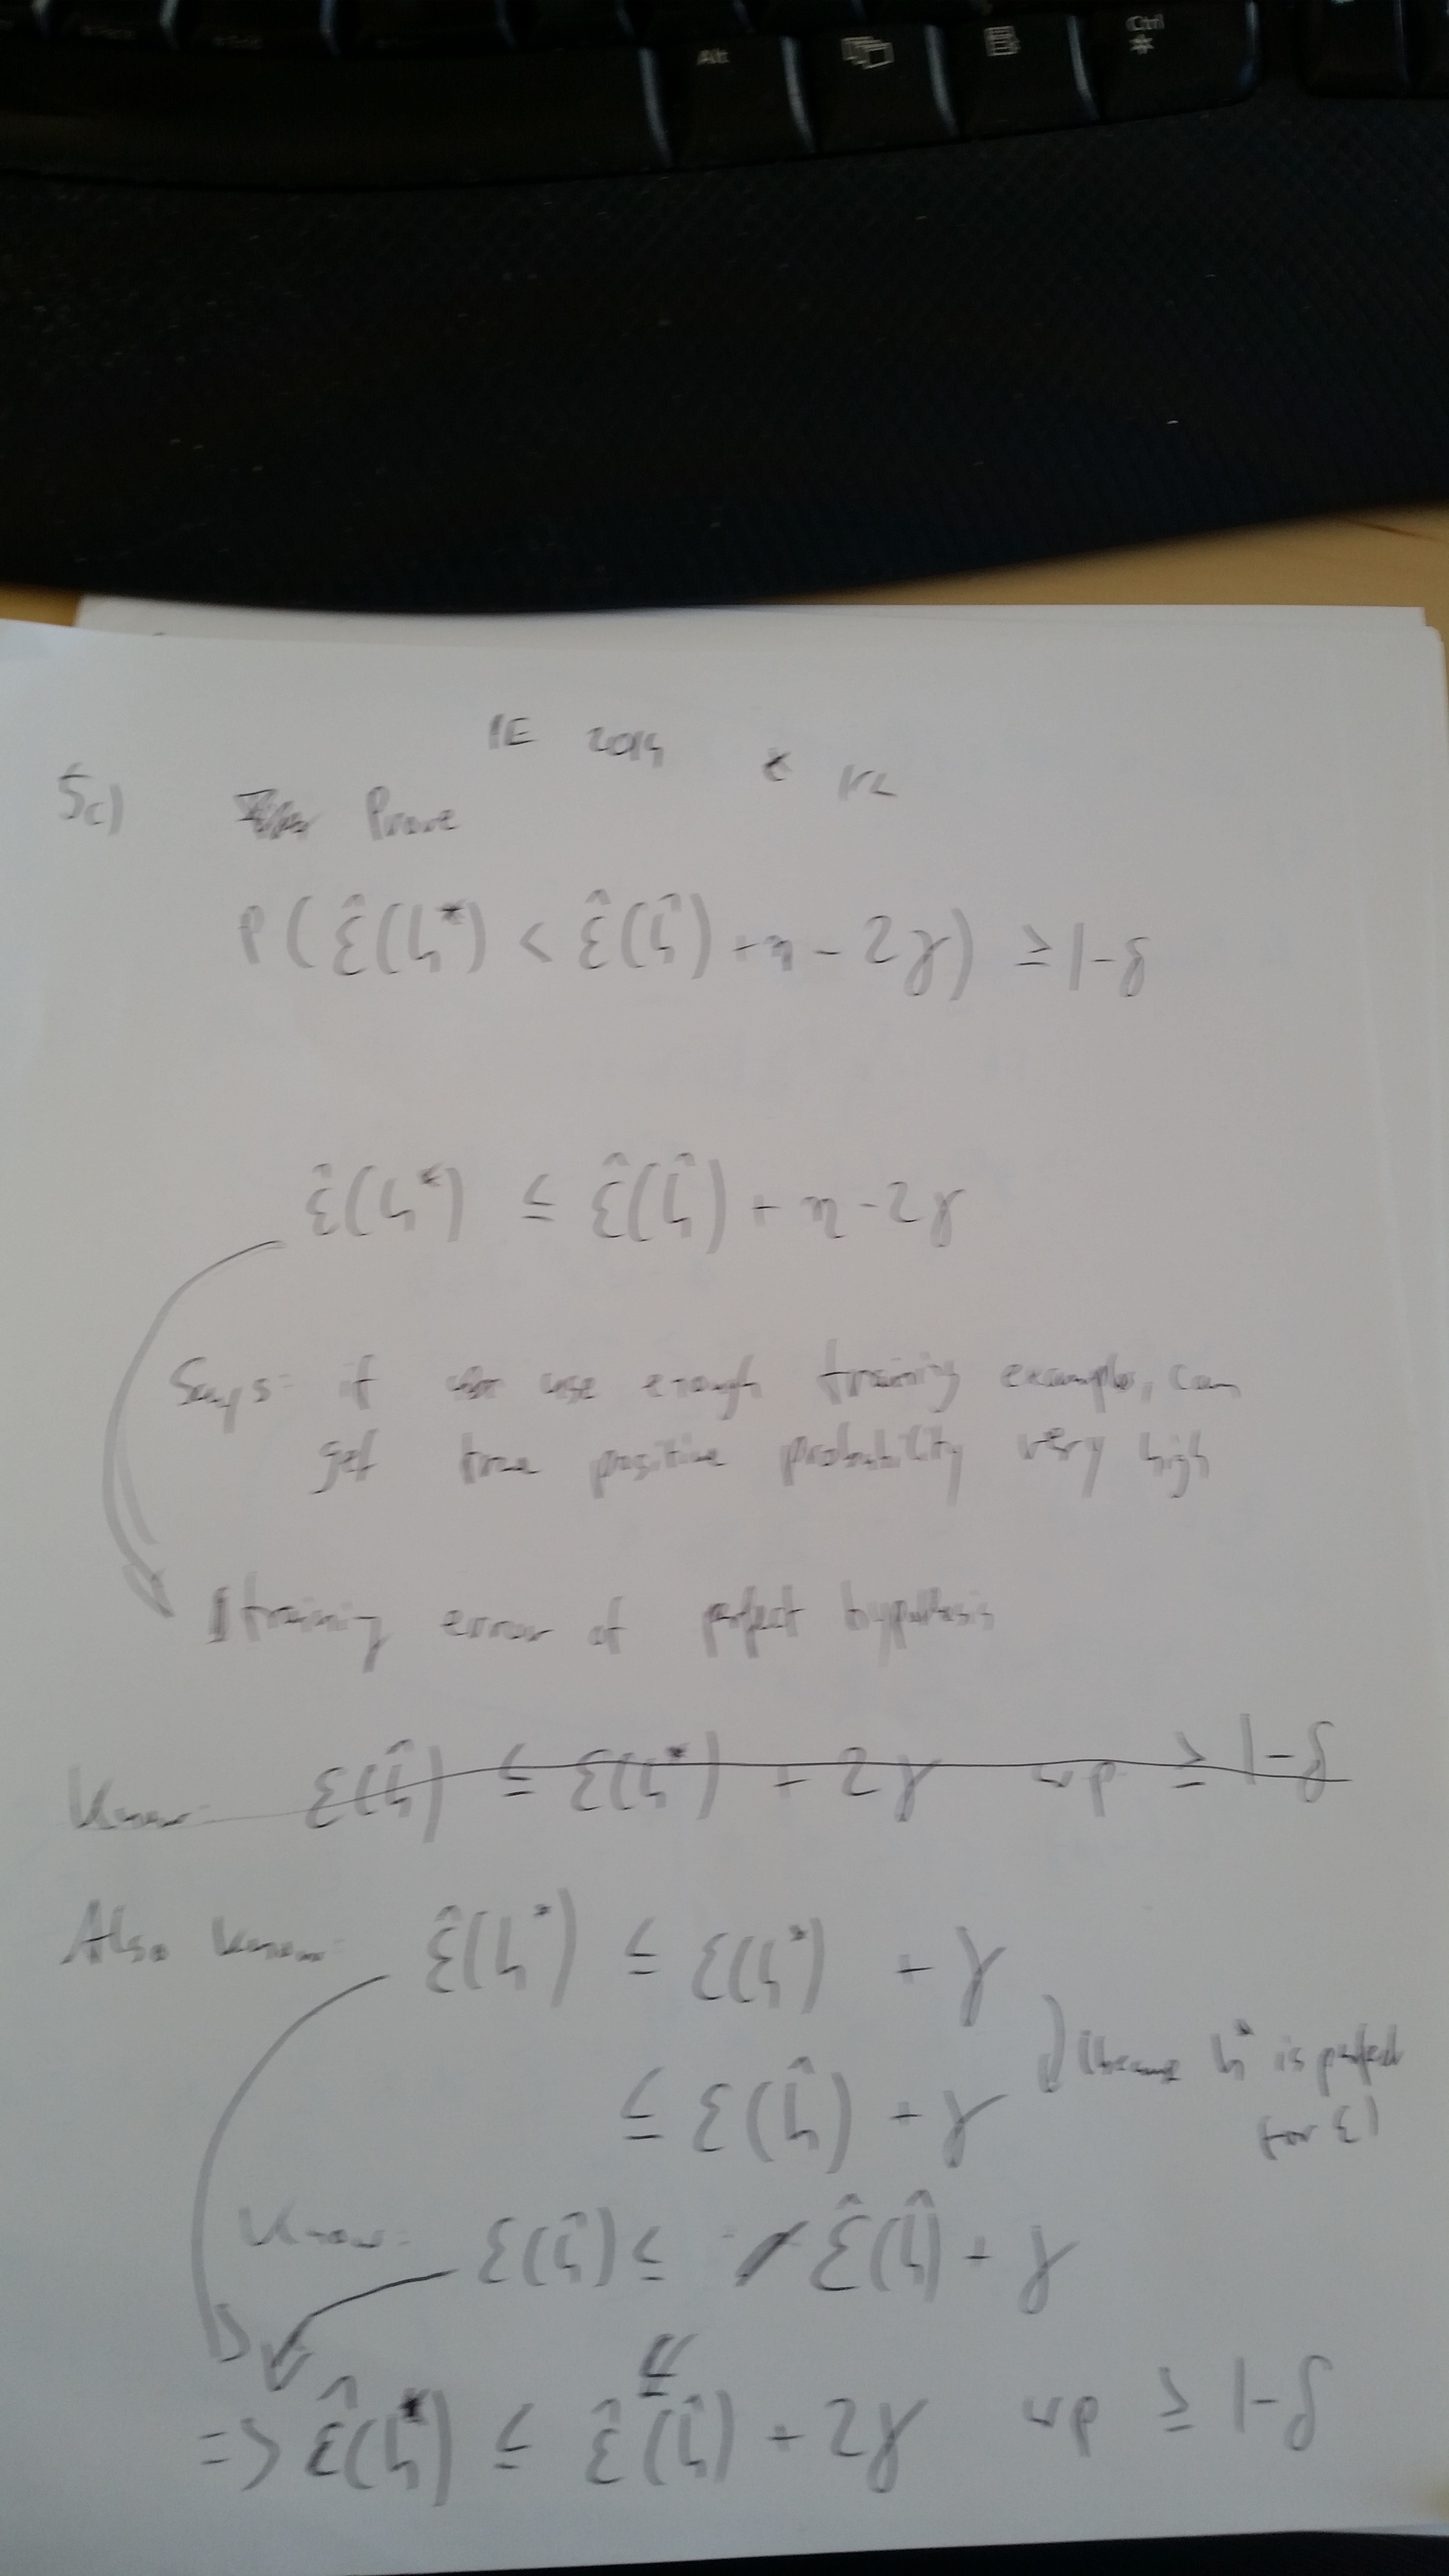 Alt Ctrl
2014
5c) Prove
P(ε̂(h*) < ε̂(ĥ) + η - 2γ) ≥ 1-δ
ε̂(h*) ≤ ε̂(ĥ) + η - 2γ
Says: if use enough training examples, can
get true positive probability very high
training error of perfect hypothesis
Know: ε(ĥ) ≤ ε(h*) + 2γ wp ≥ 1-δ
Also know: ε̂(h*) ≤ ε(h*) + γ
(because h* is perfect
≤ ε(ĥ) + γ
for ε)
Know: ε(ĥ) ≤ ε̂(ĥ) + γ
=> ε̂(h*) ≤ ε̂(ĥ) + 2γ wp ≥ 1-δ